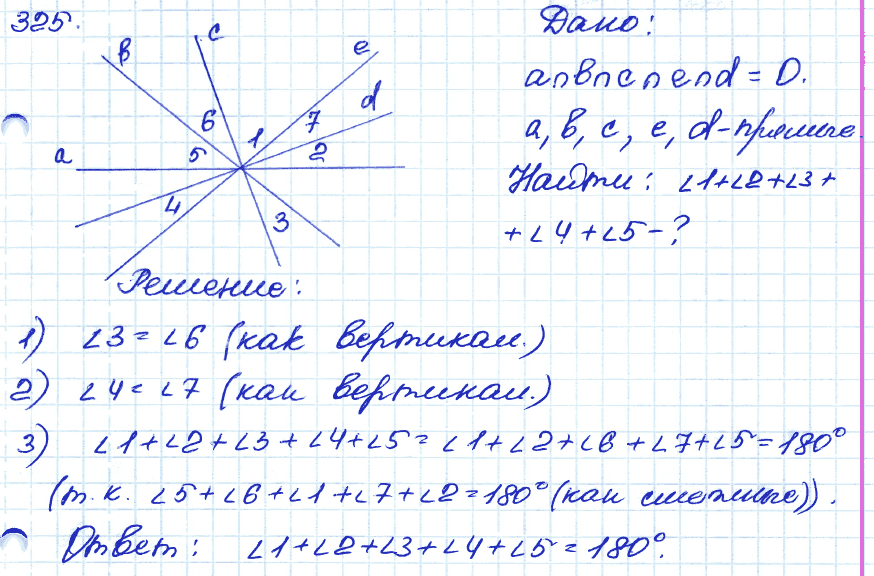 325.
в
c
e
d
a
6
1
7
5
2
4
3
Дано:
a∩в∩c∩e∩d = O.
a, в, c, e, d-прямые.
Найти: ∠1+∠2+∠3+
+∠4+∠5-?
Решение:
1) ∠3=∠6 (как вертикал.)
2) ∠4=∠7 (как вертикал.)
3) ∠1+∠2+∠3+∠4+∠5=∠1+∠2+∠6+∠7+∠5=180°
(т.к. ∠5+∠6+∠1+∠7+∠2=180° (как смежные)).
Ответ: ∠1+∠2+∠3+∠4+∠5=180°.